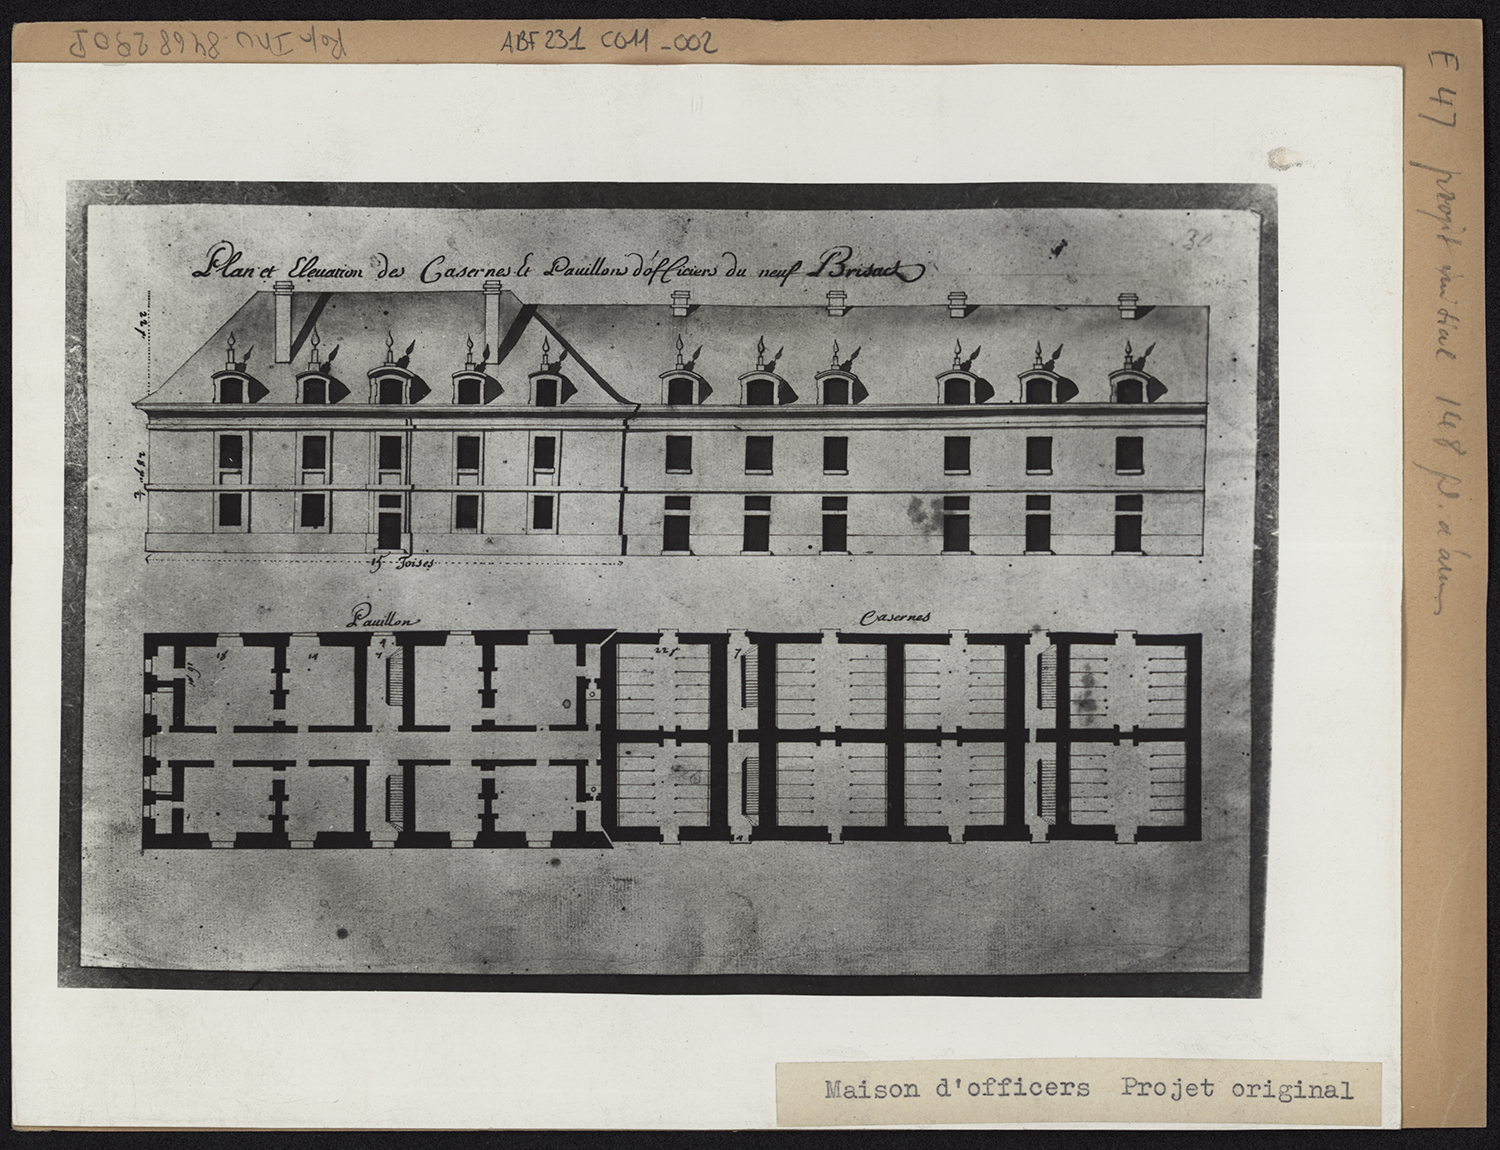 Rep. Inv. 8468 290P
ABF231 C011_002
E 47 projet initial 148
30
Plan et Eleuation des Casernes Et Pauillons d'officiers du neuf Brisack
15 Toises
Pauillon
Casernes
18
14
4
7
22 p
7
Maison d'officers Projet original